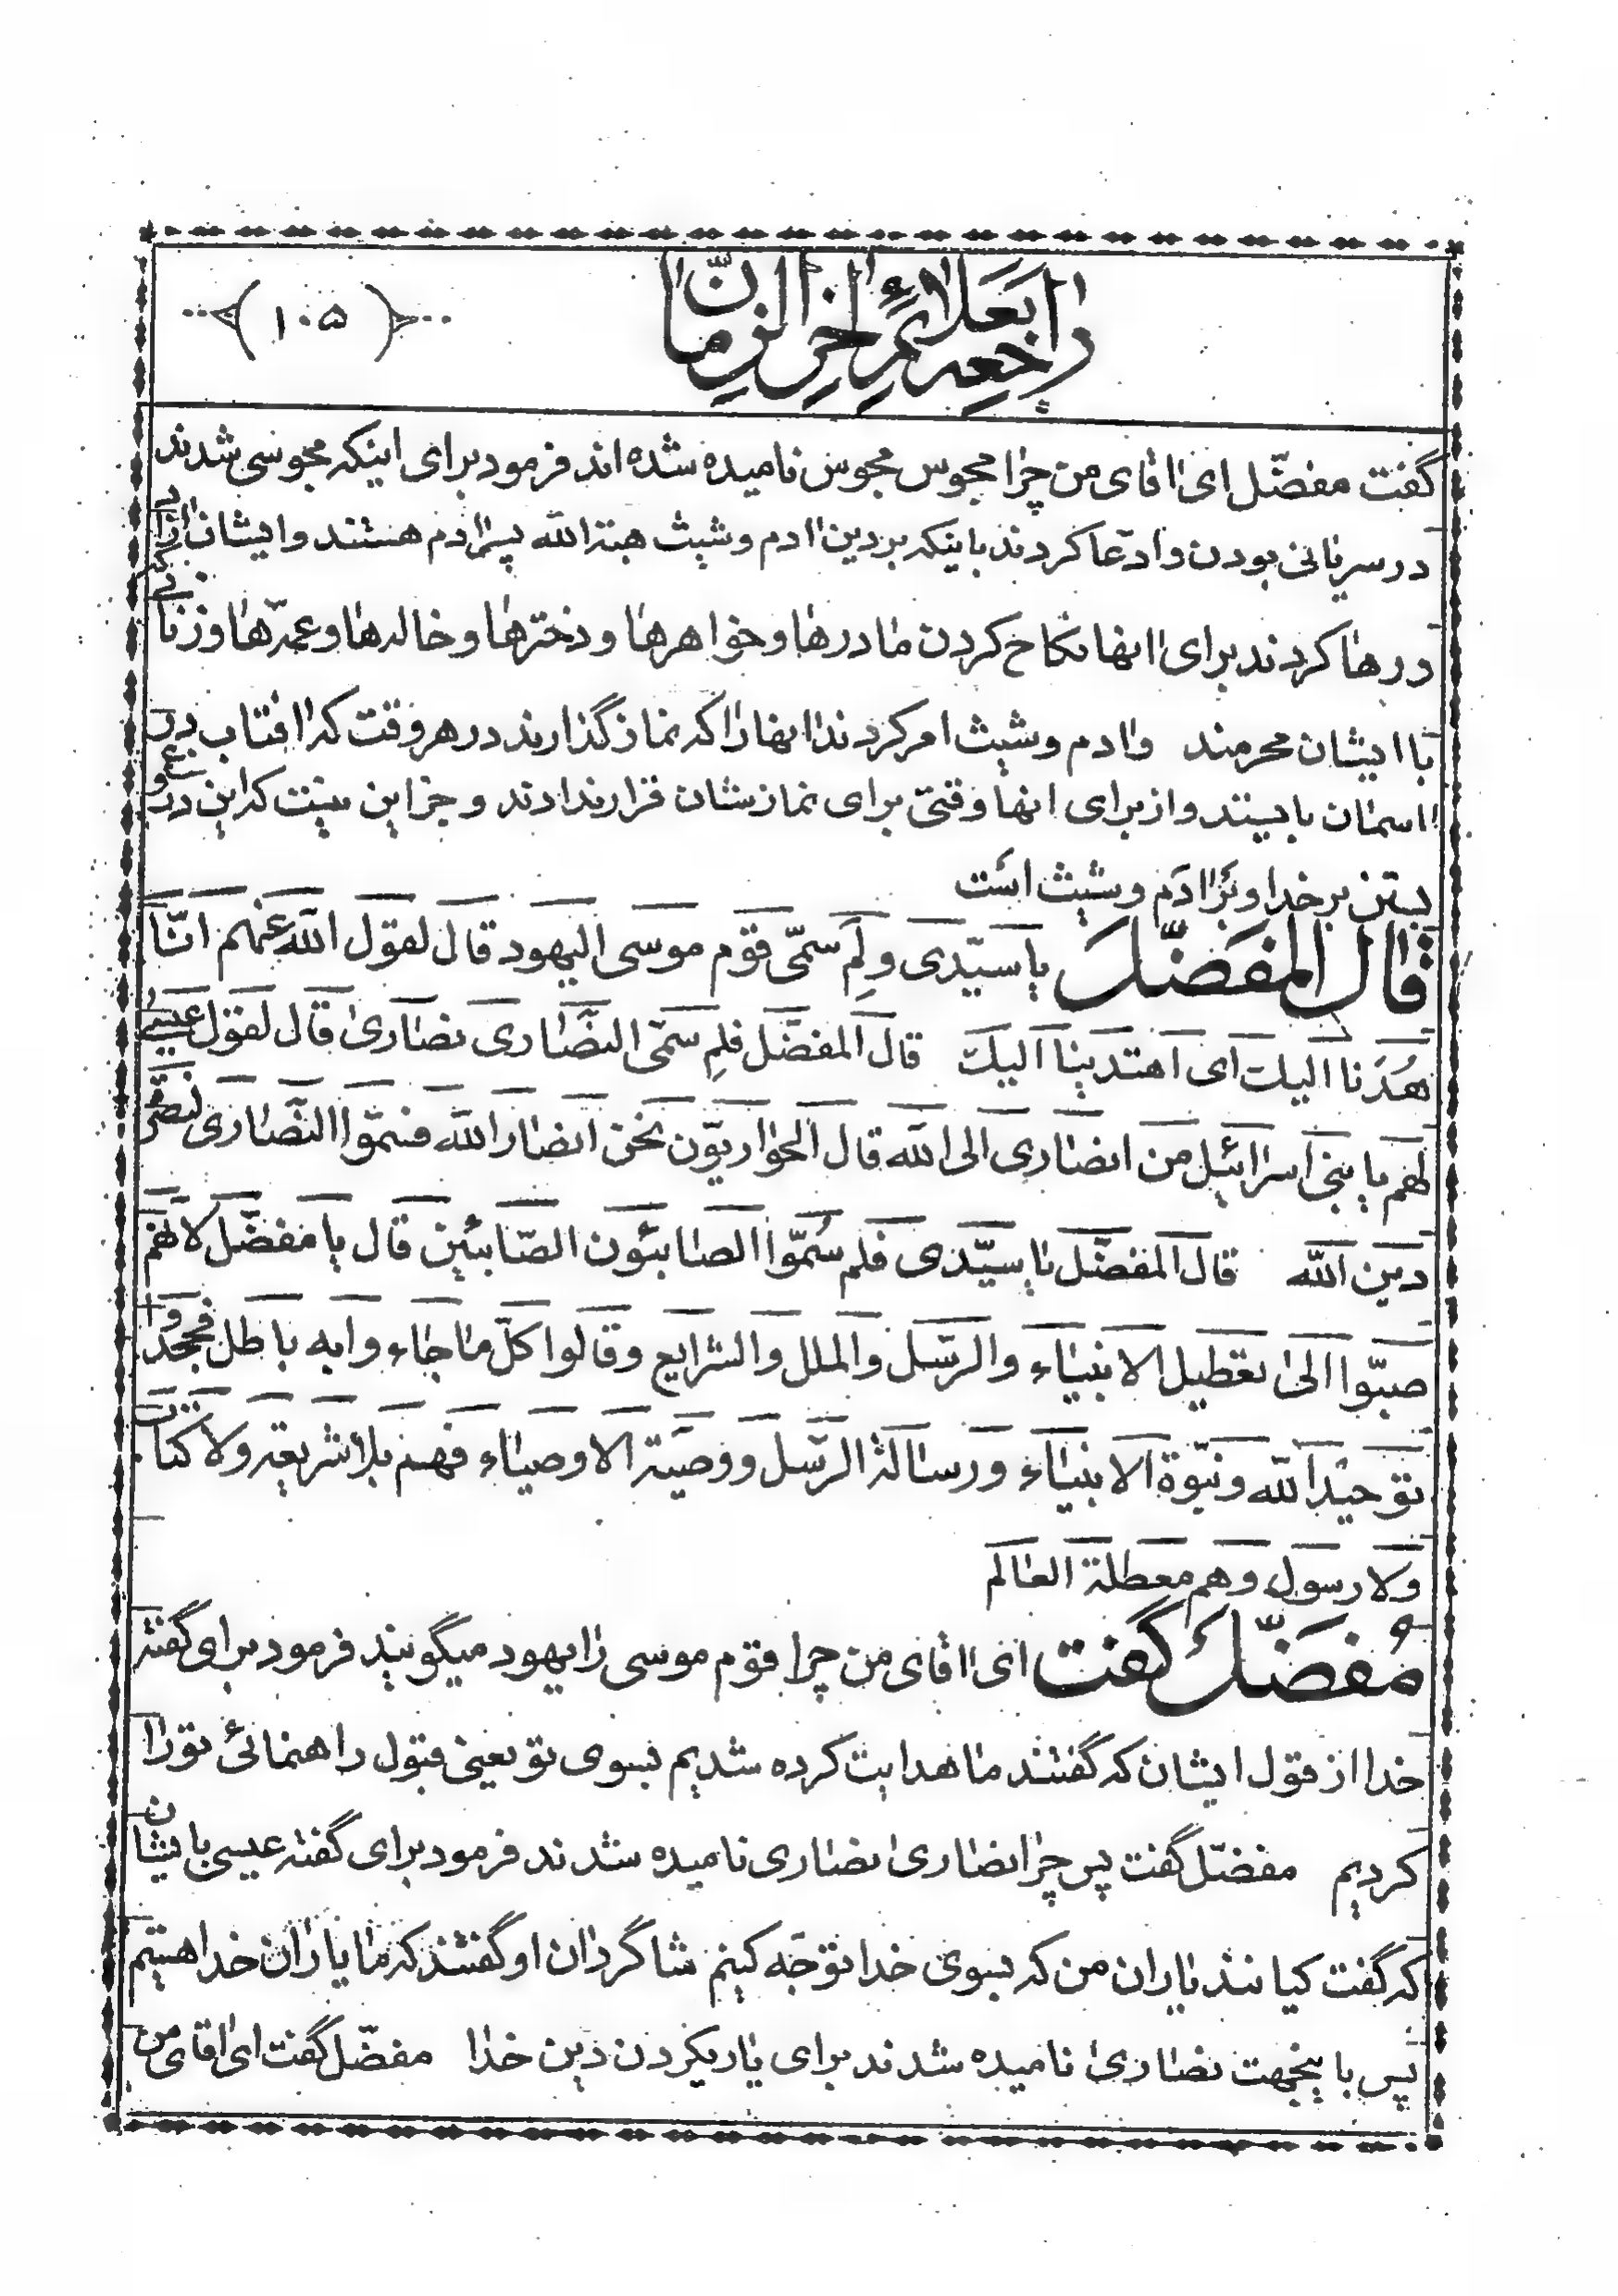 راجعه بعلائم اخر الزمان
(۱۰۵)
گفت مفضّل ای اقای من چرا مجوس مجوس نامیده شده اند فرمود برای اینکه مجوسی شدند
در سریانی بودن و ادّعا کردند باینکه بر دین ادم و شیث هبة الله پسر ادم هستند و ایشان ازا
درها کردند برای انها نکاح کردن مادرها و خواهرها و دخترها و خاله‌ها و عمّه‌ها و زنا
با ایشان محرمند وادم وشیث امر کردند انها را که نماز گذارند در هر وقت که افتاب در
اسمان بایستد واز برای انها وقتی برای نمازشان قرار ندادند و جز این نیست که این دروغ
بستن بر خدا و بر ادم و شیث است
قال المفضّل یا سیّدی ولم سمّی قوم موسی الیهود قال لقول الله عنهم انّا
هُدنا الیك ای اهتدینا الیك قال المفضّل فلم سمّی النّصاری نصاری قال لقول عیسی
لهم یا بنی اسرائیل من انصاری الی الله قال الحواریّون نحن انصار الله فسمّوا النّصاری لنصرة
دین الله قال المفضّل یا سیّدی فلم سُمّوا الصابئون الصّابئین قال یا مفضّل لانّهم
صبّوا الی تعطیل الانبیاء والرّسل والملل والشرایع وقالوا کلّ ما جاء وابه باطل فجحدوا
توحید الله ونبوّة الانبیاء ورسالة الرّسل ووصیّة الاوصیاء فهم بلا شریعة ولا کتاب
ولا رسول وهم معطلة العالم
مُفضّل گفت ای اقای من چرا قوم موسی را یهود میگویند فرمود برای گفته
خدا از قول ایشان که گفتند ما هدایت کرده شدیم بسوی تو یعنی قبول راهنمائی تو را
کردیم مفضّل گفت پس چرا نصاری نصاری نامیده شدند فرمود برای گفته عیسی بایشان
که گفت کیانند یاران من که بسوی خدا توجّه کنیم شاگردان او گفتند که ما یاران خدا هستیم
پس باینجهت نصاری نامیده شدند برای یاریکردن دین خدا مفضّل گفت ای اقای من